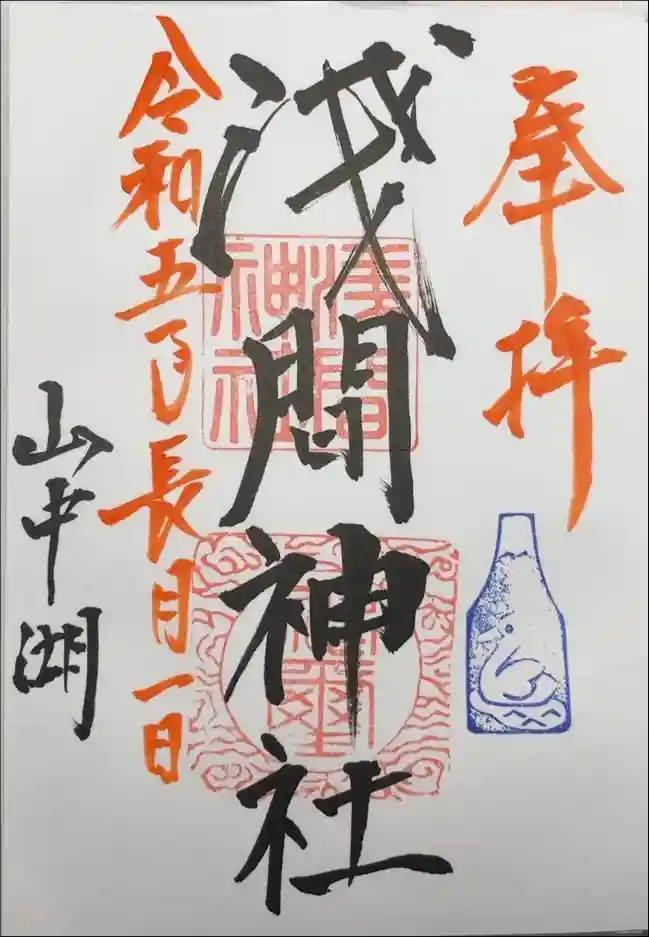 奉拝
浅間神社
令和五年長月一日
山中湖
浅間神社